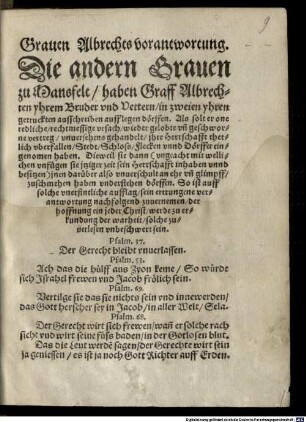 9
Grauen Albrechts vorantwortung.
Die andern Grauen
zu Mansfelt / haben Graff Albrech-
ten yhrem Bruder vnd Vettern / in zweien yhren
getruckten ausschreiben aufflegen dörffen. Als solt er one
redliche / rechtmessige vrsach / wieder gelobte vñ geschwor-
ne vertreg / vnuersehens gehandelt / ihre Herrschafft thet-
lich vberfallen / Stedt / Schloss / Flecken vnnd Dörffer ein-
genomen haben. Dieweil sie dann ( vngeacht mit wellli-
chen vnfügen sie jeniger zeit sein Herrschafft inhaben vnnd
besitzen ) jnen darüber also vnuerschult an ehr vñ glimpff /
zuschmehen haben vnderstehen dörffen. So ist auff
solche vnerfintliche aufflag / sein errungene ver-
antwortung nachfolgend zuuernemen, der
hoffnung ein jeder Christ, werde zu er-
kundung der warheit / solche zu
verlesen vnbeschwert sein.
Psalm. 37.
Der Gerecht bleibt vnuerlassen.
Psalm. 53.
Ach das die hülff aus Zyon keme / So würde
sich Israhel frewen vnd Jacob frölich sein.
Psalm. 69.
Vertilge sie das sie nichts sein vnd innewerden /
das Gott herscher sey in Jacob / in aller Welt / Sela.
Psalm. 68.
Der Gerecht wirt sich frewen / wañ er solche rach
sicht vnd wirt seine füss baden / in der Gotlosen blut.
Das die Leut werde sagen / der Gerechte wirt sein
ja geniessen / es ist ja noch Gott Richter auff Erden.